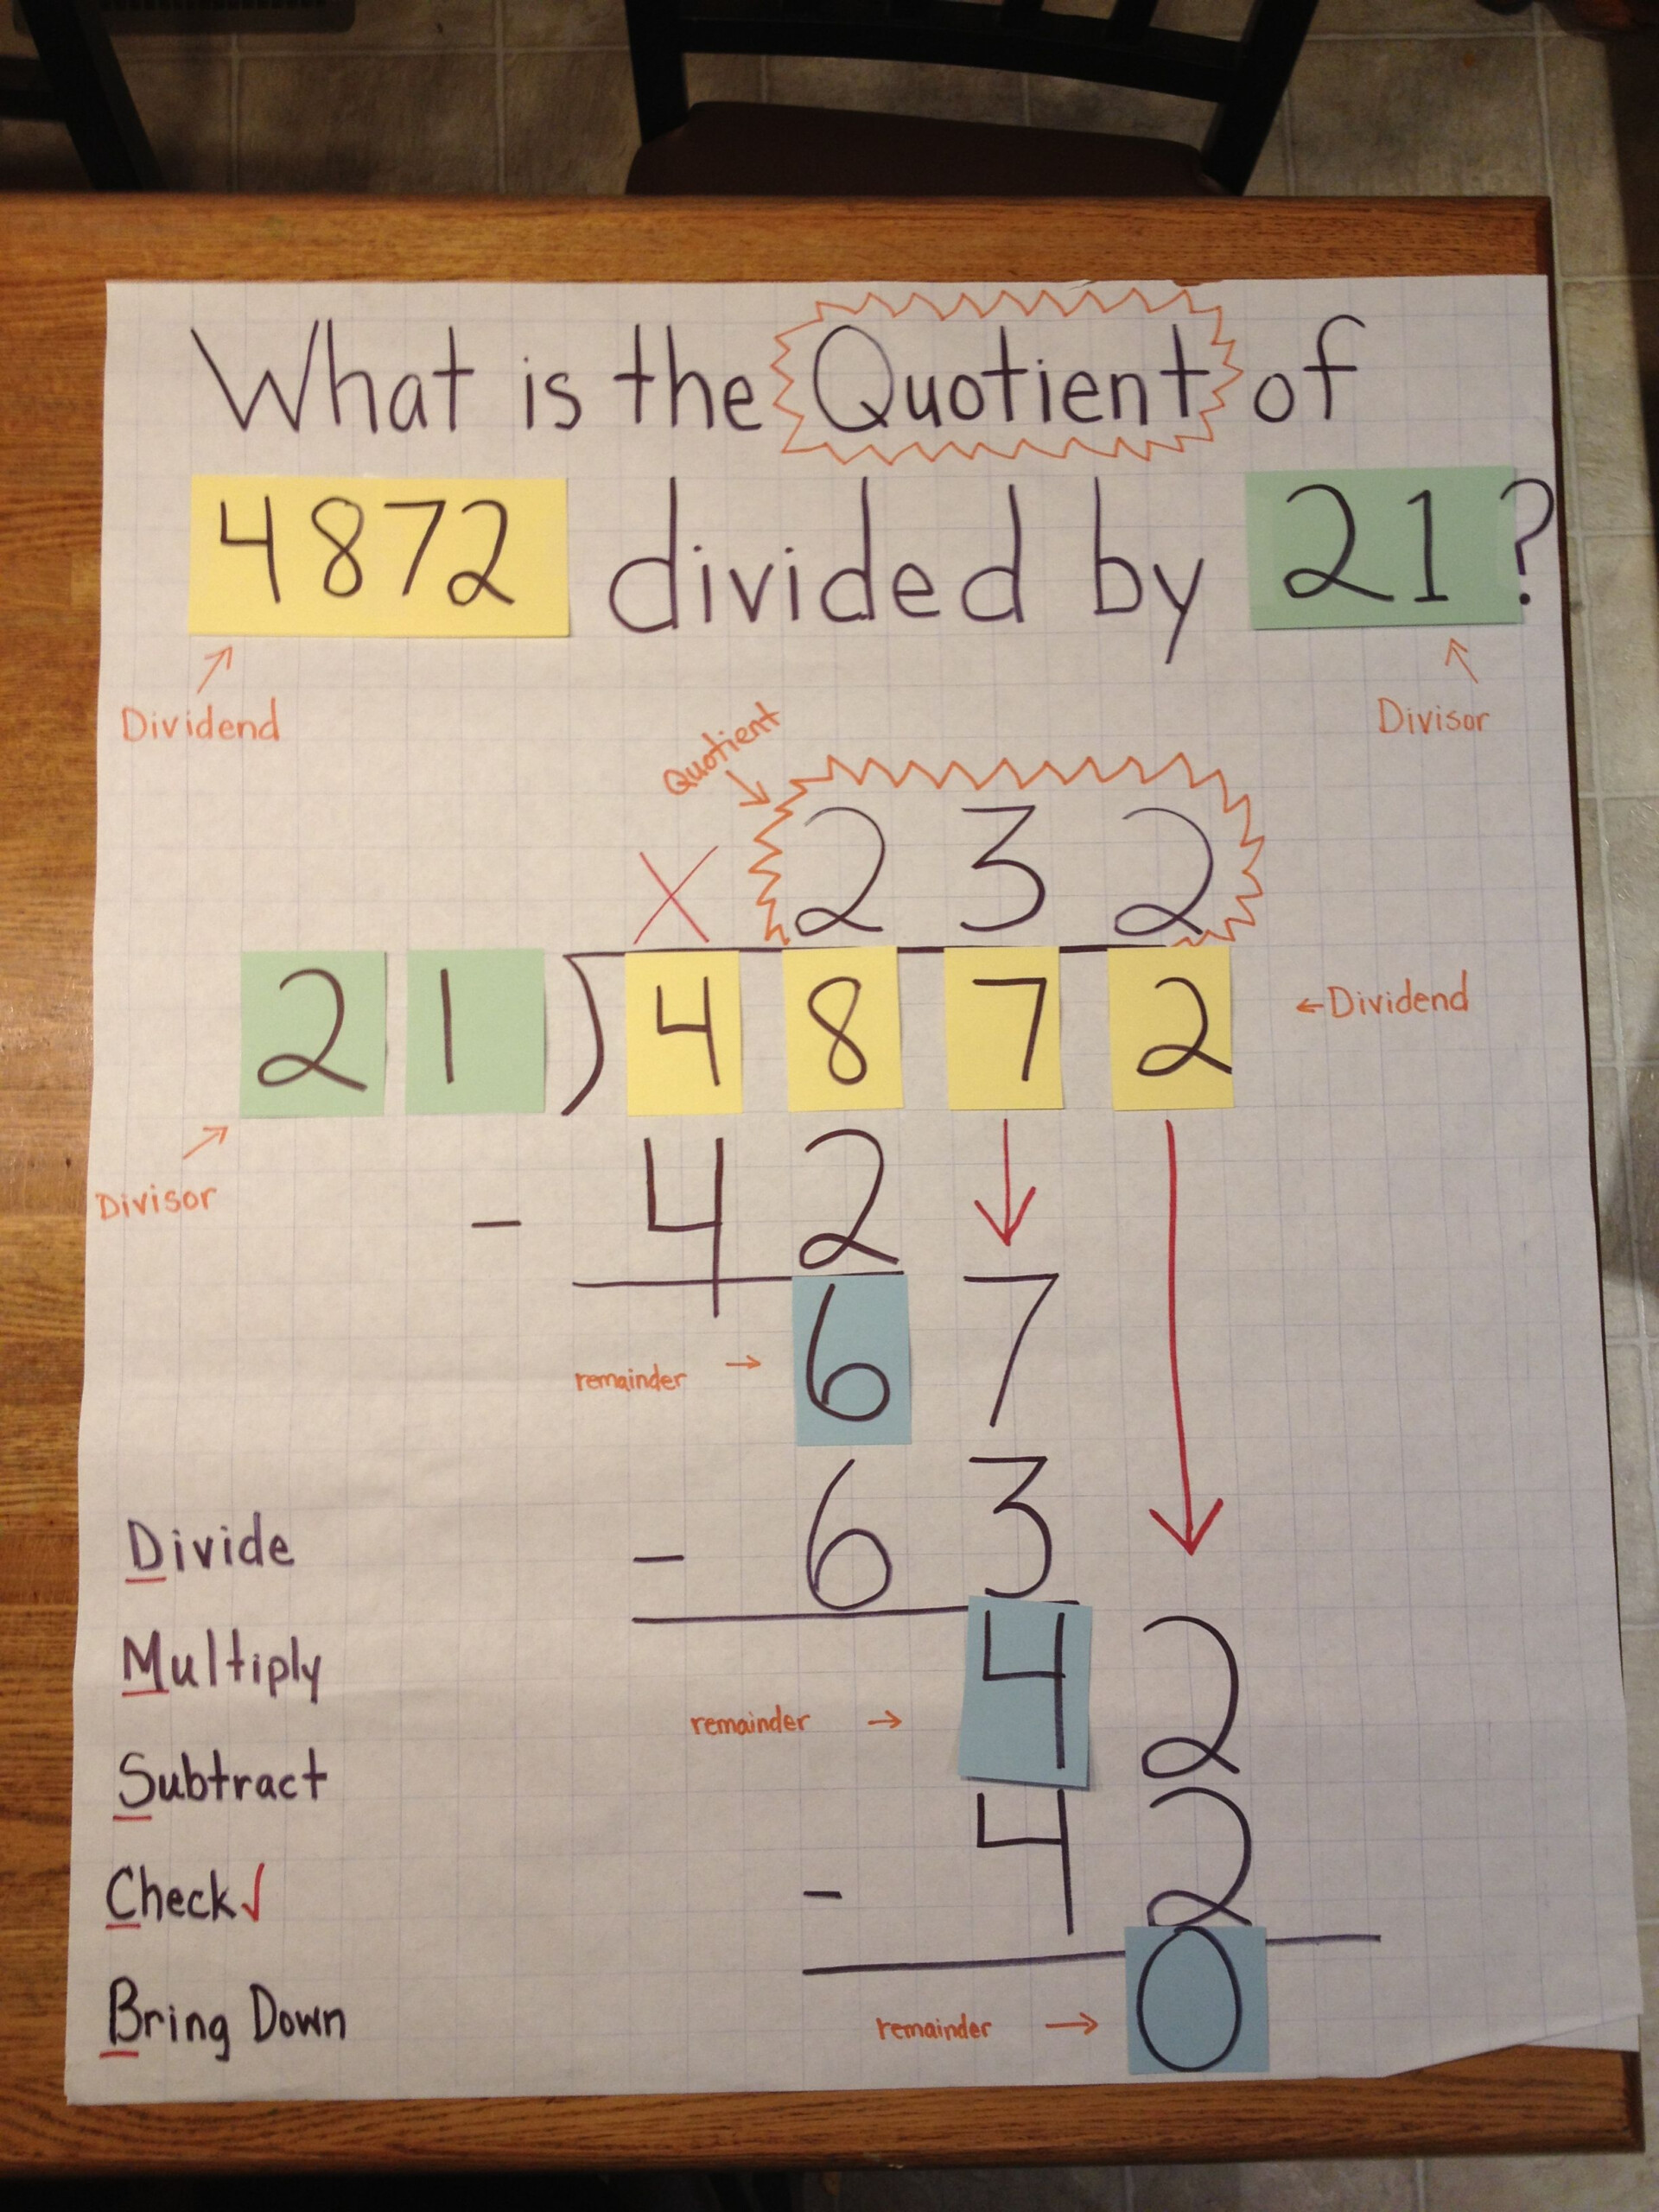 What is the Quotient of
4872 divided by 21?
Dividend
Divisor
Quotient
X 2 3 2
2 1 ) 4 8 7 2 ←Dividend
Divisor
- 4 2
remainder → 6 7
- 6 3
remainder → 4 2
- 4 2
remainder → 0
Divide
Multiply
Subtract
Check√
Bring Down